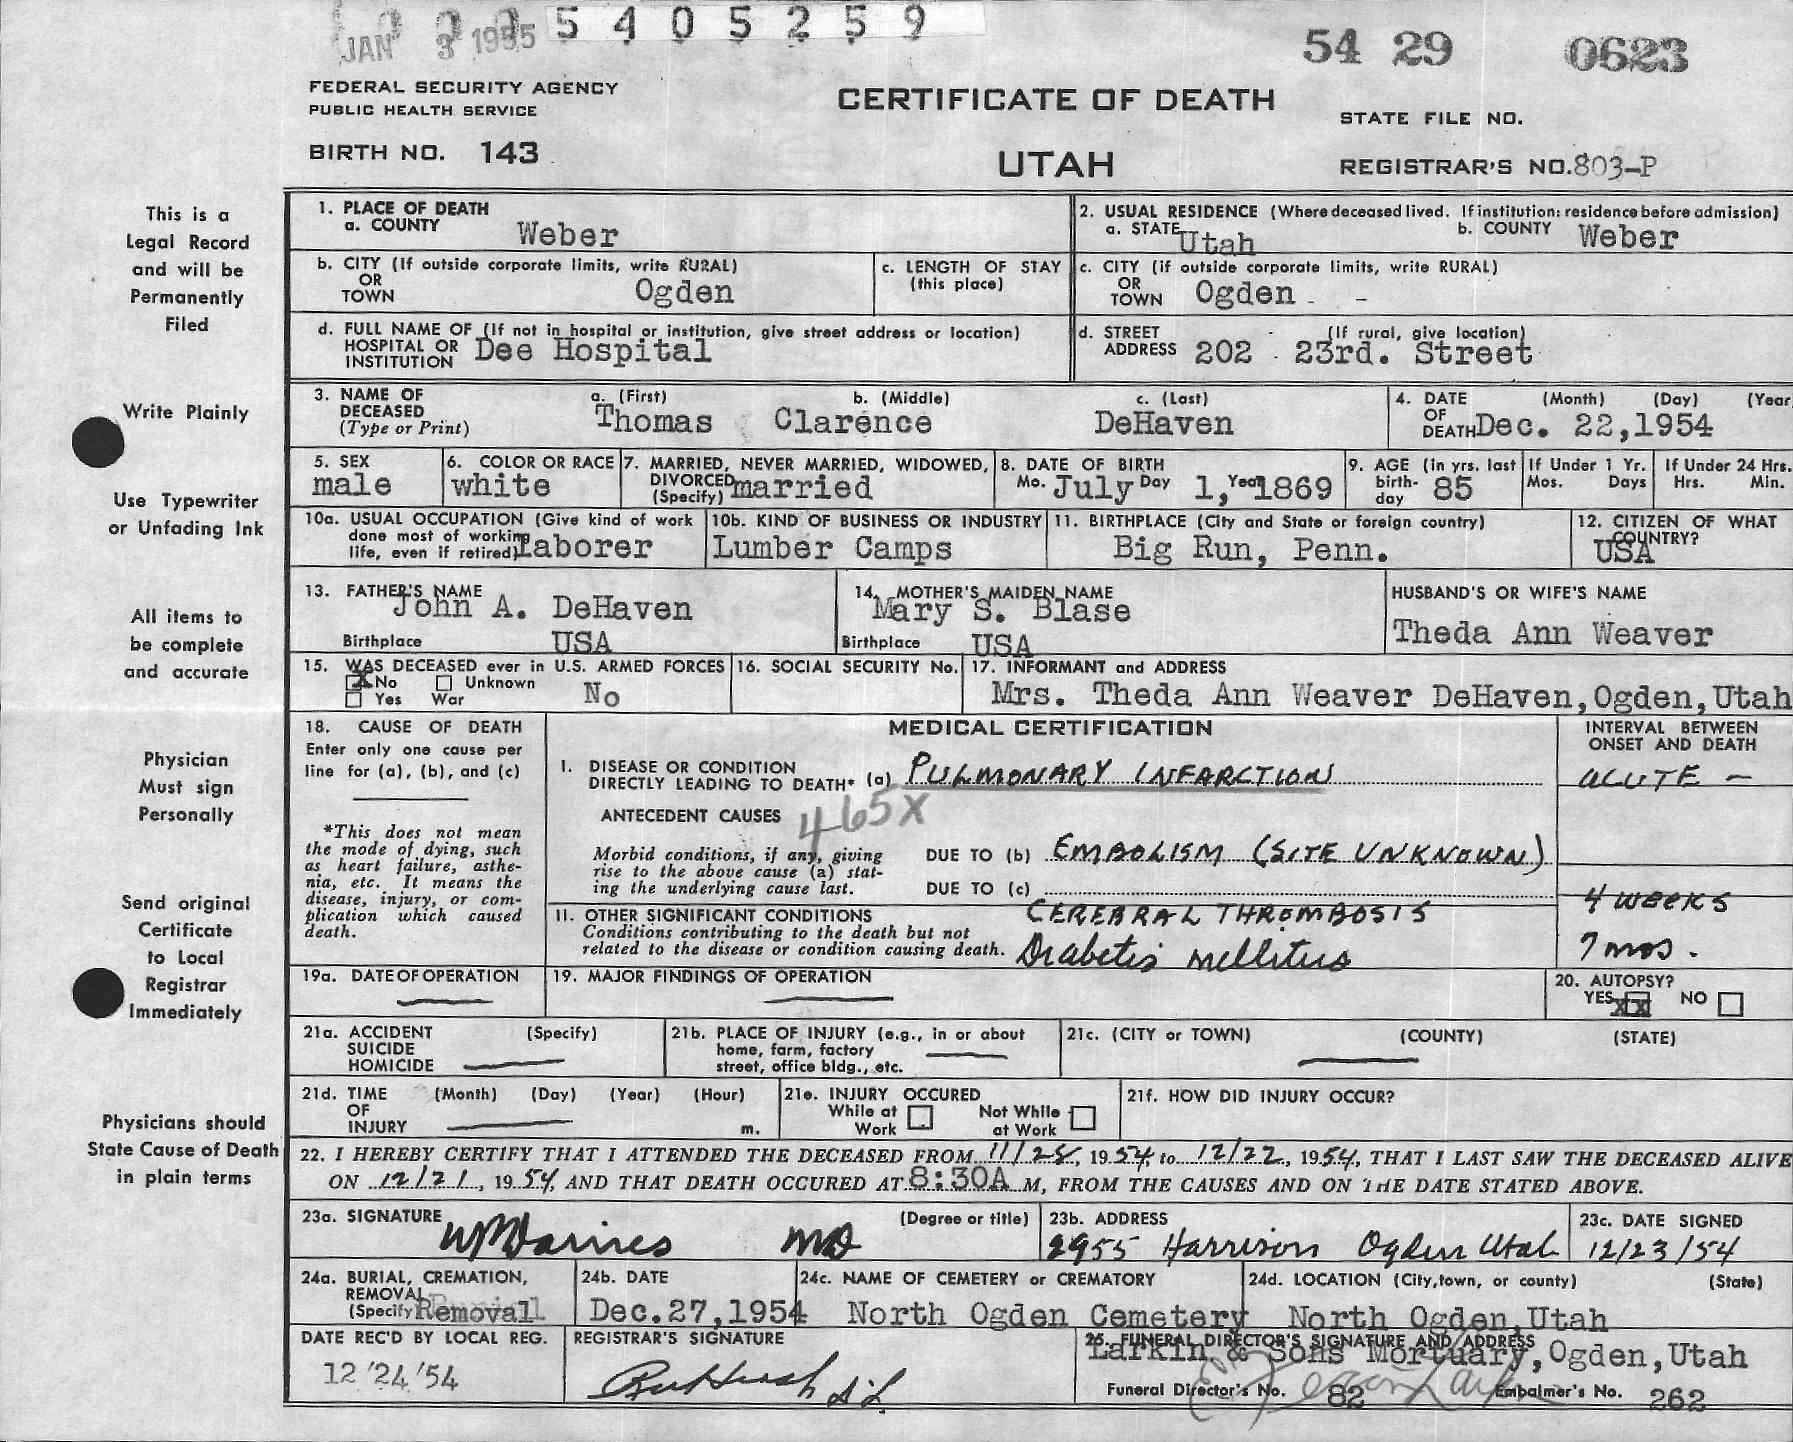 JAN 3 1955 5 4 0 5 2 5 9
54 29 0623
FEDERAL SECURITY AGENCY
PUBLIC HEALTH SERVICE
CERTIFICATE OF DEATH
STATE FILE NO.
BIRTH NO. 143
UTAH
REGISTRAR'S NO. 803-P
This is a
Legal Record
and will be
Permanently
Filed
Write Plainly
Use Typewriter
or Unfading Ink
All items to
be complete
and accurate
Physician
Must sign
Personally
Send original
Certificate
to Local
Registrar
Immediately
Physicians should
State Cause of Death
in plain terms
1. PLACE OF DEATH
a. COUNTY Weber
2. USUAL RESIDENCE (Where deceased lived. If institution: residence before admission)
a. STATE Utah b. COUNTY Weber
b. CITY (If outside corporate limits, write RURAL)
OR
TOWN Ogden
c. LENGTH OF STAY
(this place)
c. CITY (if outside corporate limits, write RURAL)
OR
TOWN Ogden - -
d. FULL NAME OF (If not in hospital or institution, give street address or location)
HOSPITAL OR
INSTITUTION Dee Hospital
d. STREET (If rural, give location)
ADDRESS 202 23rd. Street
3. NAME OF
DECEASED
(Type or Print)
a. (First) b. (Middle) c. (Last)
Thomas Clarence DeHaven
4. DATE (Month) (Day) (Year
OF
DEATH Dec. 22,1954
5. SEX
male
6. COLOR OR RACE
white
7. MARRIED, NEVER MARRIED, WIDOWED,
DIVORCED
(Specify) married
8. DATE OF BIRTH
Mo. July Day 1, Year 1869
9. AGE (in yrs. last
birth-
day 85
If Under 1 Yr.
Mos. Days
If Under 24 Hrs.
Hrs. Min.
10a. USUAL OCCUPATION (Give kind of work
done most of working
life, even if retired) Laborer
10b. KIND OF BUSINESS OR INDUSTRY
Lumber Camps
11. BIRTHPLACE (City and State or foreign country)
Big Run, Penn.
12. CITIZEN OF WHAT
COUNTRY?
USA
13. FATHER'S NAME
John A. DeHaven
Birthplace USA
14. MOTHER'S MAIDEN NAME
Mary S. Blase
Birthplace USA
HUSBAND'S OR WIFE'S NAME
Theda Ann Weaver
15. WAS DECEASED ever in U.S. ARMED FORCES
X No Unknown No
Yes War
16. SOCIAL SECURITY No.
17. INFORMANT and ADDRESS
Mrs. Theda Ann Weaver DeHaven,Ogden,Utah
18. CAUSE OF DEATH
Enter only one cause per
line for (a), (b), and (c)
*This does not mean
the mode of dying, such
as heart failure, asthe-
nia, etc. It means the
disease, injury, or com-
plication which caused
death.
MEDICAL CERTIFICATION
INTERVAL BETWEEN
ONSET AND DEATH
I. DISEASE OR CONDITION
DIRECTLY LEADING TO DEATH* (a) PULMONARY INFARCTION ACUTE -
ANTECEDENT CAUSES 465X
Morbid conditions, if any, giving
rise to the above cause (a) stat-
ing the underlying cause last.
DUE TO (b) EMBOLISM (SITE UNKNOWN)
DUE TO (c)
II. OTHER SIGNIFICANT CONDITIONS
Conditions contributing to the death but not
related to the disease or condition causing death.
CEREBRAL THROMBOSIS 4 WEEKS
Diabetis mellitus 7 mos.
19a. DATE OF OPERATION
19. MAJOR FINDINGS OF OPERATION
20. AUTOPSY?
YES XX NO
21a. ACCIDENT (Specify)
SUICIDE
HOMICIDE
21b. PLACE OF INJURY (e.g., in or about
home, farm, factory
street, office bldg., etc.
21c. (CITY or TOWN) (COUNTY) (STATE)
21d. TIME (Month) (Day) (Year) (Hour)
OF
INJURY m.
21e. INJURY OCCURED
While at Not While
Work at Work
21f. HOW DID INJURY OCCUR?
22. I HEREBY CERTIFY THAT I ATTENDED THE DECEASED FROM 11/28, 1954, to 12/22, 1954, THAT I LAST SAW THE DECEASED ALIVE
ON 12/21, 1954, AND THAT DEATH OCCURED AT 8:30A M, FROM THE CAUSES AND ON THE DATE STATED ABOVE.
23a. SIGNATURE (Degree or title)
MD
23b. ADDRESS
2955 Harrison Ogden Utah
23c. DATE SIGNED
12/23/54
24a. BURIAL, CREMATION,
REMOVAL
(Specify Removal
24b. DATE
Dec.27,1954
24c. NAME OF CEMETERY or CREMATORY
North Ogden Cemetery
24d. LOCATION (City,town, or county) (State)
North Ogden,Utah
DATE REC'D BY LOCAL REG.
12/24/54
REGISTRAR'S SIGNATURE
25. FUNERAL DIRECTOR'S SIGNATURE AND ADDRESS
Larkin & Sons Mortuary,Ogden,Utah
Funeral Director's No. 82 Embalmer's No. 262